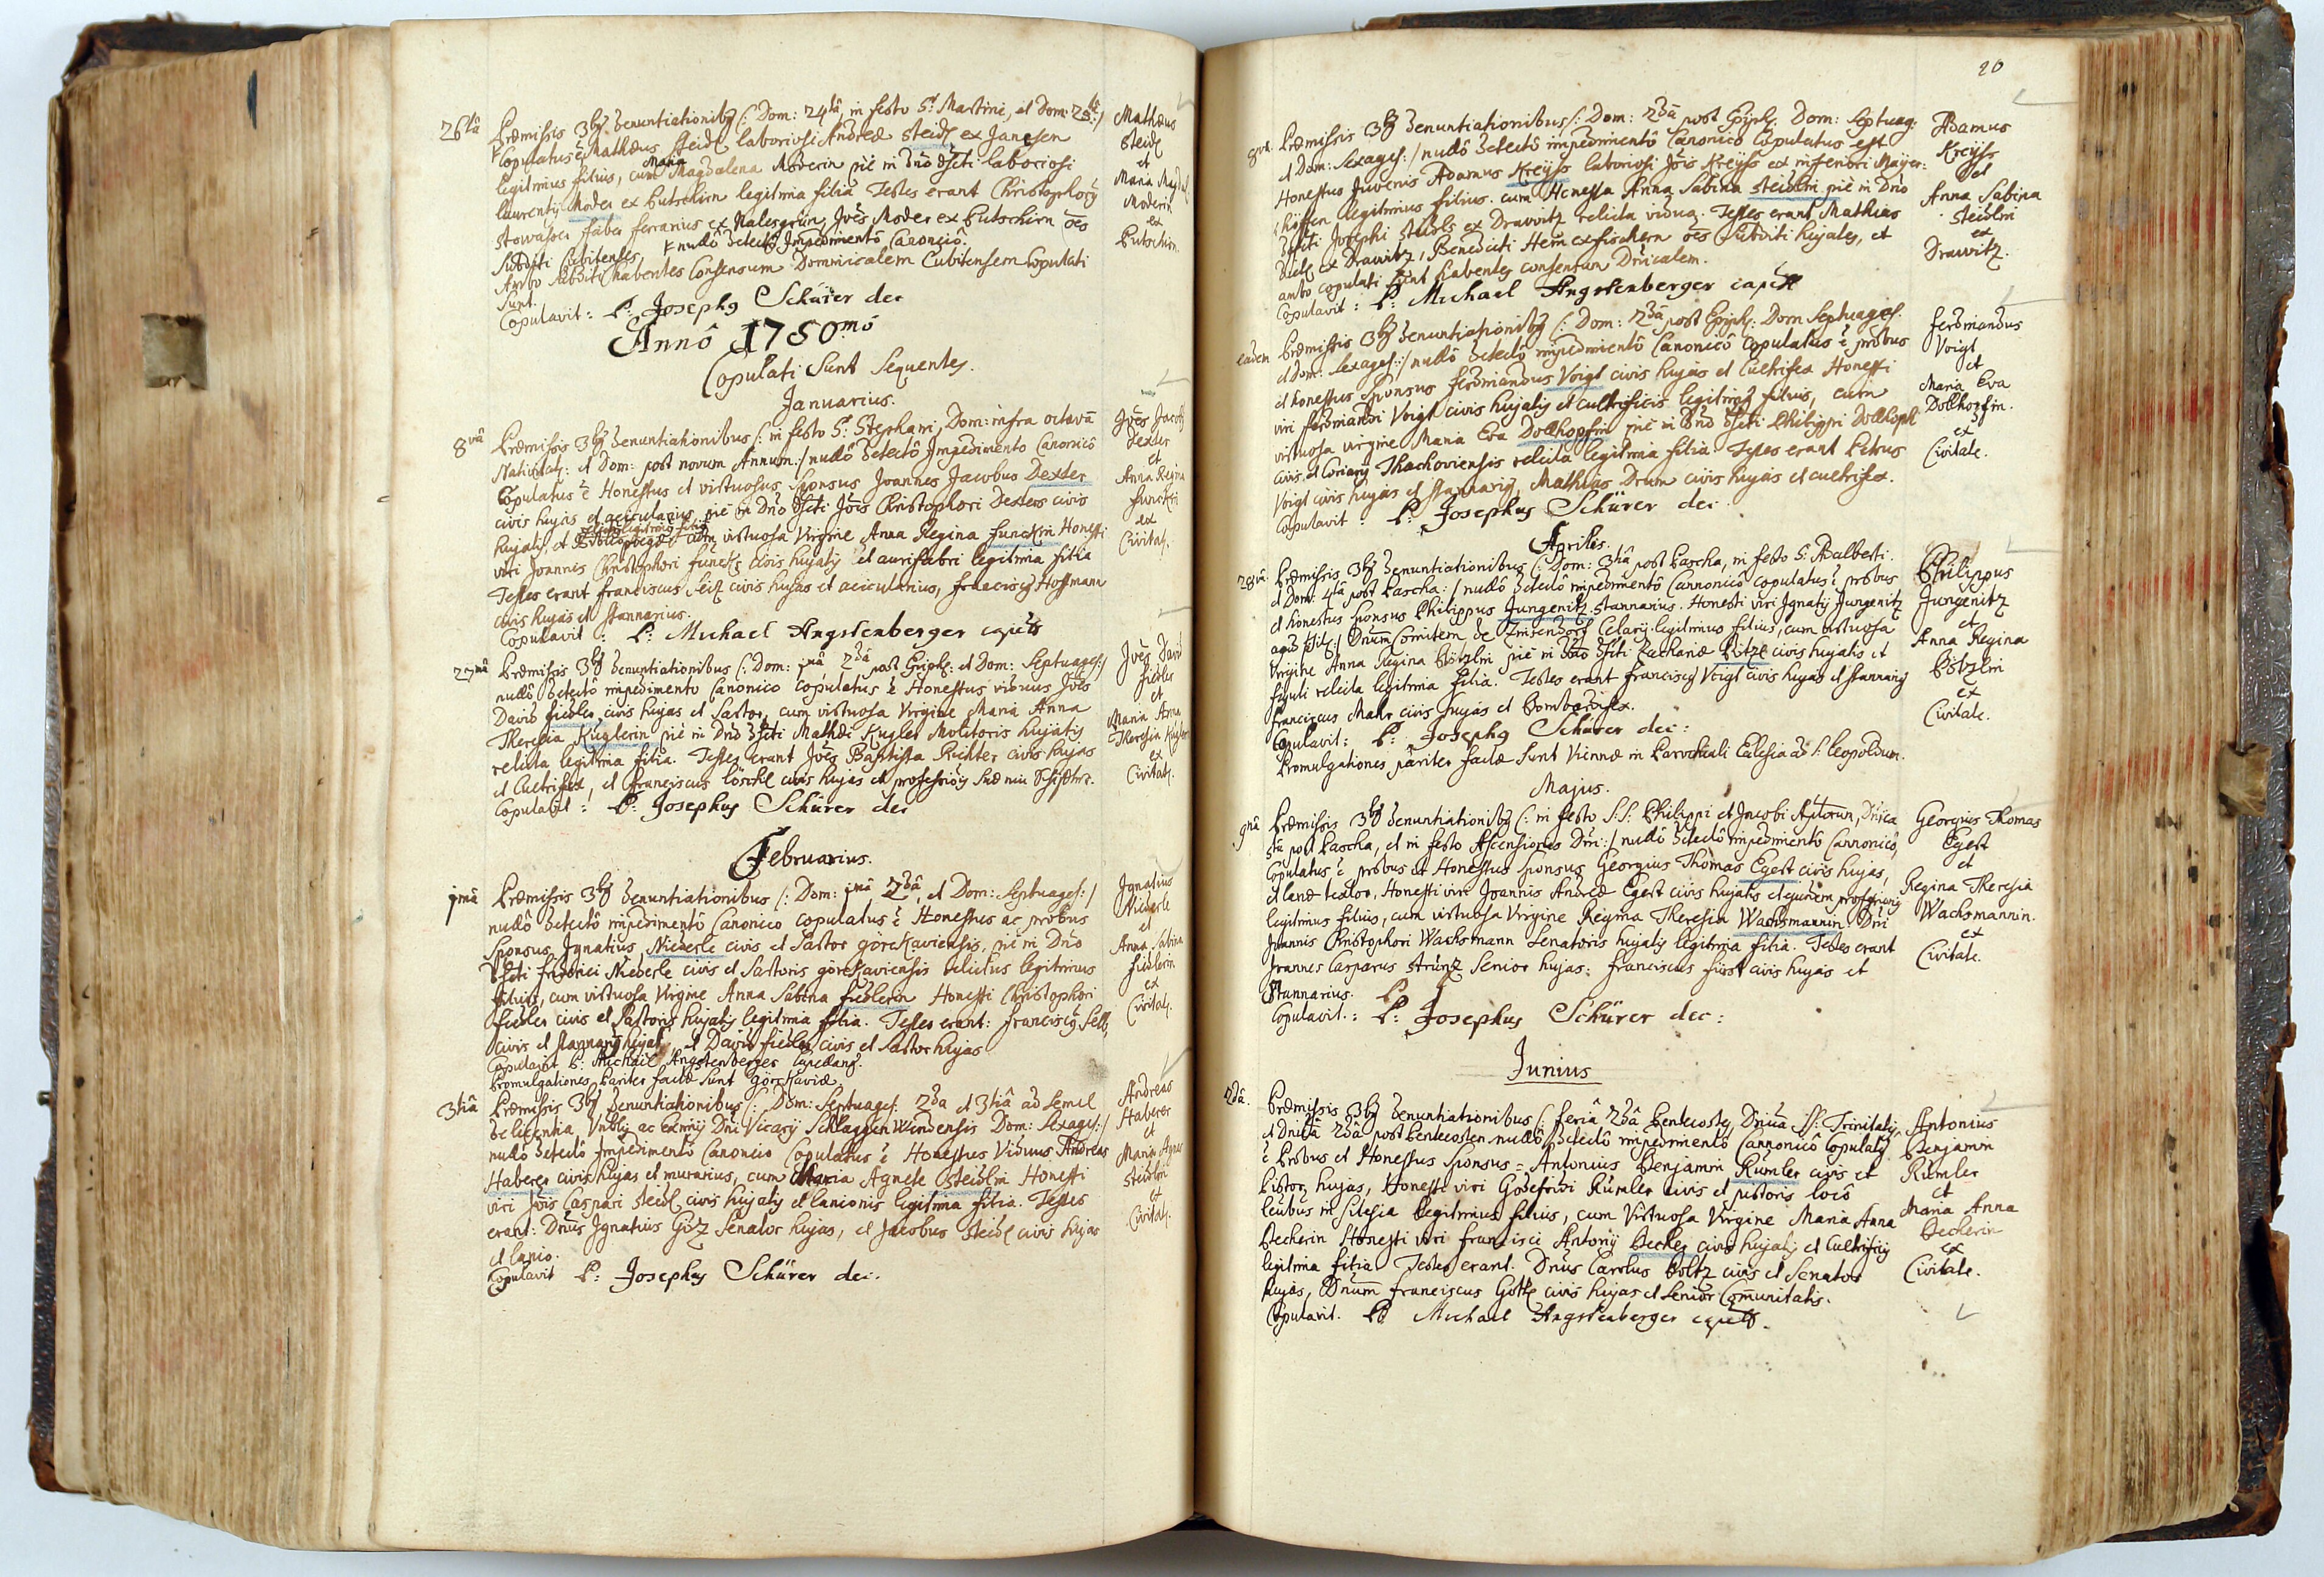 26tâ
Præmissis 3bg Denuntiationibg (: Dom: 24tâ, in festo S: Martini, et Dom: 25tâ:)
Copulatus ē Mathæus Steidl laboriosi Andreæ Steidl ex Janesen
legitimus filius, cum Maria Magdalena Moderin piè in Dn̄o dfcti laboriosi
laurentij Moder ex Putschirn legitima filia Testes erant Christophorg
Stowasser faber ferrarius ex Nalesgrün, Joēs Moder ex Putschirn oēs
Subditi Cubitenses, nullô detectô Impedimentô Canonicô.
Ambo subditi habentes Consensum Dominicalem Cubitensem Copulati
Sunt.
Copulavit: P: Josephg Schürer dec
Mathæus
Steidl
et
Maria Magdal
Moderin
ex
Putschirn.
Annô 1750.mô
Copulati Sunt Sequentes.
Januarius.
8vâ
Præmissis 3bg Denuntiationibus (: in festo S: Stephani, Dom: infra octavā
Nativitatis: et Dom: post novum Annum:/ nullô detectô Impedimento Canonicô
Copulatus ē Honestus et virtuosus Sponsus Joannes Jacobus Dexler
civis hujas et acicularius, piè in Dn̄o dfcti Jōis Christophori Dexlers civis
hujatis, et relictus legitimus filius cum virtuosa Virgine Anna Regina Funckin Honesti
viri Joannis Christophori Funcks civis hujatis et aurifabri legitima filia
Testes erant Franciscus Seitz civis hujas et acicularius, Franciscg Hoffmann
civis hujas et Stannarius.
Copulavit: P: Michael Angstenberger capell
Joēs Jacob
Dexler
et
Anna Regina
Funckin
ex
Civitat.
27mâ
Præmissis 3bg Denuntiationibus (: Dom: 1mâ 2dâ post Epiph: et Dom: Septuages:/
nullô detectô impedimento Canonico copulatus ē Honestus viduus Joēs
David Fiedler civis hujas et Sartor, cum virtuosa Virgine Maria Anna
Theresia Kuglerin piè in Dn̄o dfcti Mathæi Kugler Molitoris hujatis
relicta legitima filia. Testes erant Joēs Baptista Richter civis hujas
et Cultrifex, et Franciscus Löschl civis hujas et professionis suæ
Copulavit: P: Josephus Schürer dec
Joēs David
Fiedler
et
Maria Anna
Theresia Kugler
ex
Civitat.
Februarius.
1mâ
Præmissis 3bg Denuntiationibus (: Dom: 1mâ 2dâ, et Dom: Septuages:/
nullô detectô impedimentô Canonico copulatus ē Honestus ac probus
Sponsus Ignatius Niederle civis et Sartor görckaviensis, piè in Dn̄o
dfcti Friderici Niederle civis et Sartoris görckaviensis relictus legitimus
filius, cum virtuosa Virgine Anna Sabina Fiedlerin Honesti Christophori
Fiedler civis et Sartoris hujatis legitima filia. Testes erant: Franciscg
civis et stannarig hujas, et David Fiedler civis et Sartor hujas
Copulavit P: Michael Angstenberger Capellang.
Promulgationes Pariter factæ Sunt görckaviæ
Ignatius
Niederle
et
Anna Sabina
Fiedlerin
ex
Civitat.
3tiâ
Præmissis 3bg Denuntiationibus (: Dom: Septuages: 2da et 3tiâ ad Semel
de licentia ac Eximij Dn̄i Vicarij SchlaggenWendensis Dom: Sexages:/
nullô detectô Impedimentô Canonico Copulatus ē Honestus Viduus Andreas
Haberer civis hujas et murarius, cum Maria Agnete Steidlin Honesti
viri Jōis Caspari Steidl civis hujatis et lanionis legitima filia. Testes
erant: Dn̄us Ignatius Götz Senator hujas, et Jacobus Steidl civis hujas
et lanio.
Copulavit P: Josephus Schürer dec.
Andreas
Haberer
et
Maria Agnes
Steidlin
ex
Civitat.
20
8va
Præmissis 3bg Denuntiationibus (: Dom: 2dâ post Epiph: Dom: Septuag:
et Dom: Sexages:/ nullô detectô impedimentô Canonicô Copulatus est
Honestus Juvenis Adamus Kreyss laboriosi Jōis Kreyss ex inferiori Mayer:
höffen legitimus filius. cum Honesta Anna Sabina Steidlin piè in Dn̄o
dfcti Josephi Steidls ex Drawitz relicta vidua. Testes erant Mathias
ex Drawitz, Benedicti Hein ex Fischern oēs Subditi hujates, et
ambo copulati sunt habentes consensum Dn̄icalem.
Copulavit: P: Michael Angstenberger capell
Adamus
Kreyss
et
Anna Sabina
Steidlin
ex
Drawitz.
eadem
Præmissis 3bg Denuntiationibg (: Dom: 2dâ post Epiph: Dom Septuages.
et Dom: Sexages:/ nullô detectô impedimentô Canonicô copulatus ē probus
et honestus Sponsus Ferdinandus Voigt civis hujas et Cultrifex Honesti
viri Ferdinandi Voigt civis hujatis et cultrificis legitimg filius, cum
virtuosa virgine Maria Eva Dollhopfin piè in Dn̄o dfcti Philippi Dollhopf
civis et Coriarij Thachoviensis relicta legitima filia. Testes erant Petrus
Voigt civis hujas et stannarig, Mathias Drum civis hujas et cultrifex.
Copulavit: P: Josephus Schürer dec.
Ferdinandus
Voigt
et
Maria Eva
Dollhopfin.
ex
Civitate.
Aprilis.
28vâ
Præmissis 3bg Denuntiationibus (: Dom: 3tiâ post Pascha, in festo S: Adalberti.
et Dom: 4tâ post Pascha:/ nullô detectô impedimentô Cannonicô copulatus ē probus
et honestus Sponsus Philippus Jungenitz stannarius. Honesti viri Ignatij Jungenitz
apud Dn̄um Comitem de Zinsendorf Celarij legitimus filius, cum virtuosa
Virgine Anna Regina Pötzlin piè in Dn̄o dfcti Zachariæ Pötzl civis hujatis et
figuli relicta legitima filia. Testes erant Franciscg Voigt civis hujas et stannarig
Franciscus Mahr civis hujas et Bombardifex.
Copulavit: P: Josephg Schürer dec:
Promulgationes pariter factæ sunt Viennæ in Parochiali Eclesia ad S: Leopoldum.
Philippus
Jungenitz
et
Anna Regina
Pötzlin
ex
Civitate.
Majus.
9nâ
Præmissis 3bg Denuntiationibg (: in festo S:S: Philippi et Jacobi Aptorum, Dn̄ica
5tâ post Pascha, et in festo Ascensionis Dn̄i:/ nullô detectô impedimentô Cannonicô,
Copulatus ē probus et Honestus Sponsus Georgius Thomas Egert civis hujas,
et lanæ textor, Honesti viri Joannis Andreæ Egert civis hujatis et ejusdem professionis
legitimus filius, cum virtuosa Virgine Regina Theresia Wachsmannin Dn̄i
Joannis Christophori Wachsmann Senatoris hujatis legitima filia. Testes erant
Joannes Casparus Strünz Senior hujas: Franciscus Fürst civis hujas et
Stannarius.
Copulavit.: P: Josephus Schürer dec:
Georgius Thomas
Egert
et
Regina Theresia
Wachsmannin.
ex
Civitate.
Junius
2dâ.
Præmissis 3bg Denuntiationibus (: feriâ 2dâ Pentecostes, Dn̄icâ SS: Trinitatis,
et Dn̄icâ 2dâ post Pentecosten nullô detectô impedimentô Cannonicô Copulatg
ē Probus et Honestus Sponsus = Antonius Benjamin Rümler civis et
Pistor hujas, Honesti viri Godefridi Rümler civis et pistoris locô
Leubus in Silesia legitimus filius, cum Virtuosa Virgine Maria Anna
Beckerin Honesti viri Francisci Antonij Becker civis hujatis et Cultrificis
legitima filia Testes erant. Dn̄us Carolus Boltz civis et Senator
hujas, Dn̄um Franciscus Gottl civis hujas et Senior Com̄unitatis.
Copulavit. P: Michael Angstenberger capell.
Antonius
Benjamin
Rümler
et
Maria Anna
Beckerin
ex
Civitate.